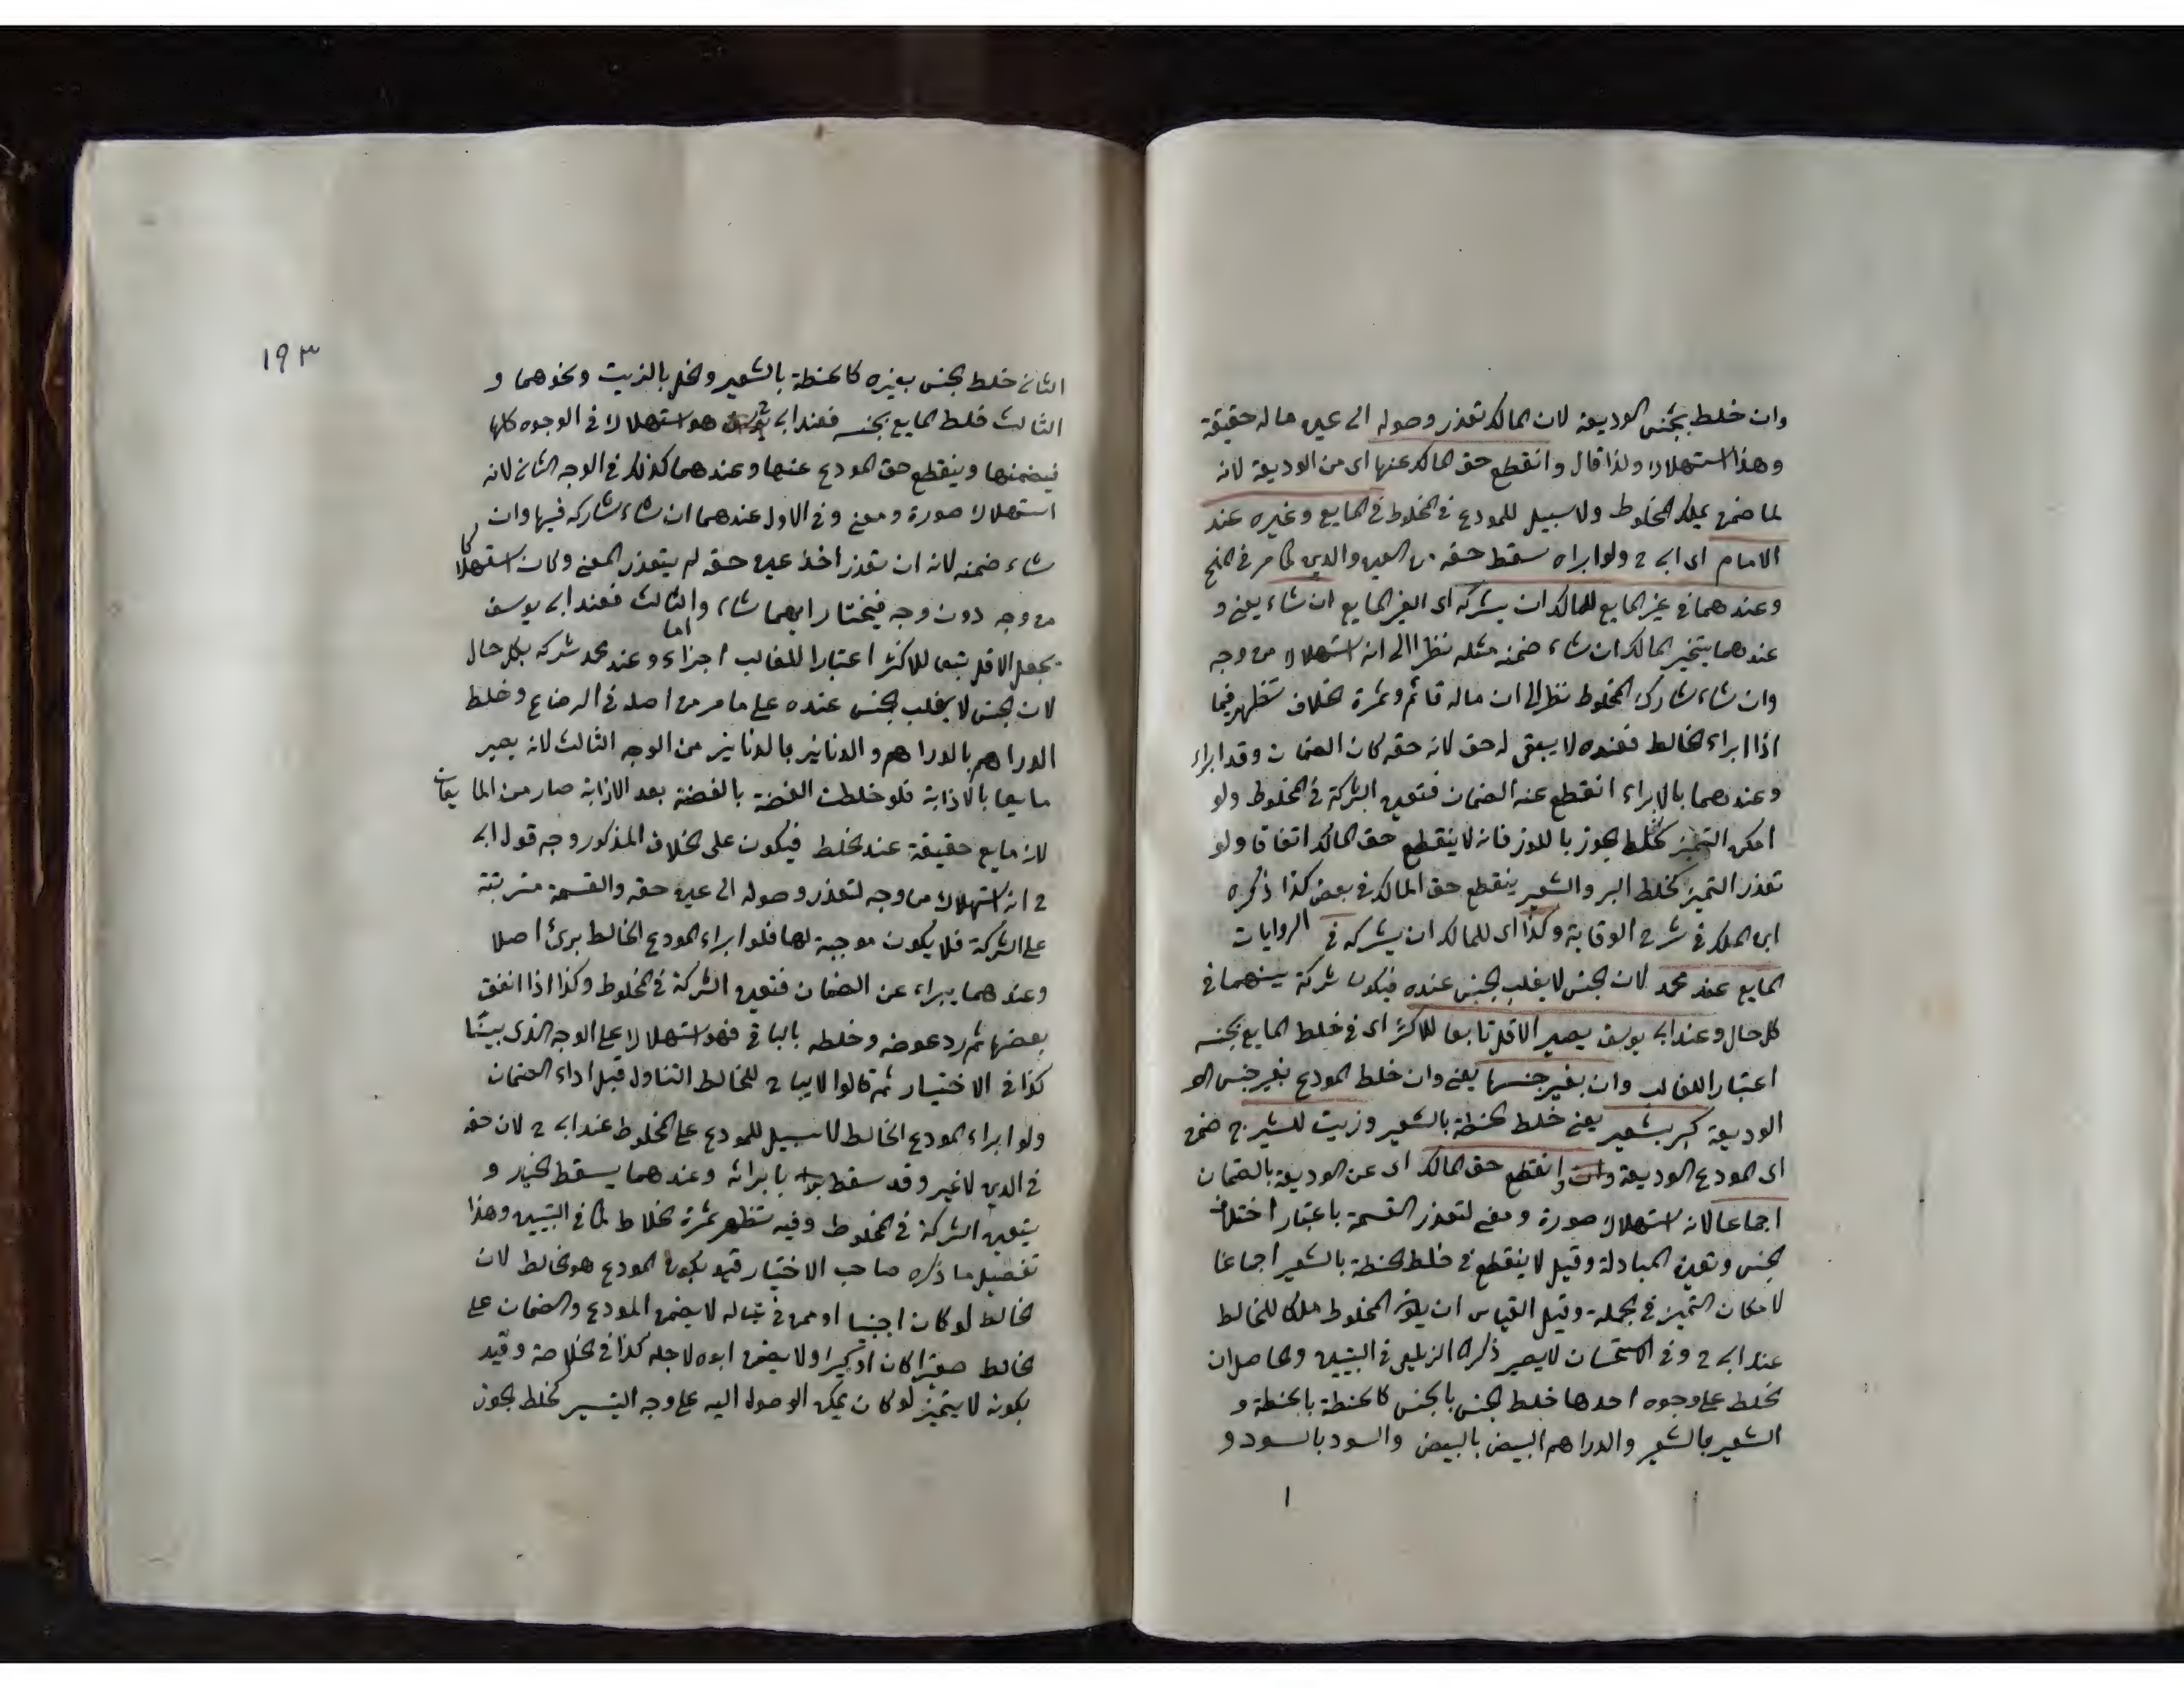 وان خلط بجنس الوديعة لان المالك تعذر وصوله الى عين ماله حقيقة
وهذا استهلاك ولذا قال وانقطع حق المالك عنها اى من الوديعة لانه
لما ضمن يملك المخلوط ولا سبيل للمودع فى المخلوط فى المايع وغيره عند
الامام اى ابى ح ولو ابراه سقط حقه من العين والدين كما مر فى المنح
وعندهما فى غير المايع للمالك ان يشركه اى الغير المايع ان شاء يعنى و
عندهما يتخير المالك ان شاء ضمنه مثله نظرا الى انه استهلاك من وجه
وان شاء شارك المخلوط نظرا الى ان ماله قائم وثمرة الخلاف تظهر فيما
اذا ابراء الخالط فعنده لا يبقى له حق لانه حقه كان الضمان وقد ابراء
وعندهما بالابراء انقطع عنه الضمان فتعين الشركة فى المخلوط ولو
امكن التميز كخلط الجوز باللوز فانه لا ينقطع حق المالك اتفاقا ولو
تعذر التميز كخلط البر والشعير ينقطع حق المالك فى بعض كذا ذكره
ابن الملك فى شرح الوقاية وكذا اى للمالك ان يشركه فى الروايات
المايع عند محمد لان الجنس لا يغلب الجنس عنده فيكون شركة بينهما فى
كل حال وعند ابى يوسف يصير الاقل تابعا للاكثر اى فى خلط المايع بجنسه
اعتبارا للغالب وان بغير جنسها يعنى وان خلط المودع بغير جنس الو
الوديعة كبر بشعير يعنى خلط الحنطة بالشعير وزيت للشيرج ضمن
اى المودع الوديعة وانقطع حق المالك اى عن الوديعة بالضمان
اجماعا لانه استهلاك صورة ومعنى لتعذر القسمة باعتبار اختلاف
الجنس وتعين المبادلة وقيل لا ينقطع فى خلط الحنطة بالشعير اجماعا
لامكان التميز فى الجملة وقيل القياس ان يكون المخلوط ملكا للخالط
عند ابى ح وفى الاستحسان لا يصير ذكره الزيلعى فى التبيين والحاصل ان
الخلط على وجوه احدها خلط الجنس بالجنس كالحنطة بالحنطة و
الشعير بالشعير والدراهم البيض بالبيض والسود بالسود و
١٩٣
الثانى خلط الجنس بغيره كالحنطة بالشعير والخل بالزيت ونحوهما و
الثالث خلط المايع بجنسه فعند ابى ح هو استهلاك فى الوجوه كلها
فيضمنها وينقطع حق المودع عنها وعندهما كذلك فى الوجه الثانى لانه
استهلاك صورة ومعنى وفى الاول عندهما ان شاء شاركه فيها وان
شاء ضمنه لانه ان تعذر اخذ عين حقه لم يتعذر المعنى وكان استهلاكا
من وجه دون وجه فيختار ايهما شاء واما الثالث فعند ابى يوسف
يجعل الاقل تبعا للاكثر اعتبارا للغالب اجزاء وعند محمد شركه بكل حال
لان الجنس لا يغلب الجنس عنده على ما مر من اصله فى الرضاع وخلط
الدراهم بالدراهم والدنانير بالدنانير من الوجه الثالث لانه يصير
مايعا بالاذابة فلو خلطت الفضة بالفضة بعد الاذابة صار من المايعات
لانه مايع حقيقة عند الخلط فيكون على الخلاف المذكور وجه قول ابى
ح انه استهلاك من وجه لتعذر وصوله الى عين حقه والقسمة مترتبة
على الشركة فلا يكون موجبة لها فلو ابراء المودع الخالط برئ اصلا
وعندهما يبراء عن الضمان فتعين الشركة فى المخلوط وكذا اذا انفق
بعضها ثم رد عوضه وخلطه بالباقى فهو استهلاك على الوجه الذى بينا
كذا فى الاختيار ثم قالوا لا يباح للخالط التناول قبل اداء الضمان
ولو ابراء المودع الخالط لا سبيل للمودع على المخلوط عند ابى ح لان حقه
فى الدين لا غير وقد سقط بابرائه وعندهما يسقط الخيار و
يتعين الشركة فى المخلوط وفيه تظهر ثمرة الخلاط كما فى التبيين وهذا
تفصيل ما ذكره صاحب الاختيار قيد بكون المودع هو الخالط لان
الخالط لو كان اجنبيا او ممن فى عياله لا يضمن المودع والضمان على
الخالط صغيرا كان او كبيرا ولا يضمن ابوه لاجله كذا فى الخلاصة وقيد
بكونه لا يتميز لو كان يمكن الوصول اليه على وجه التيسير كخلط الجوز